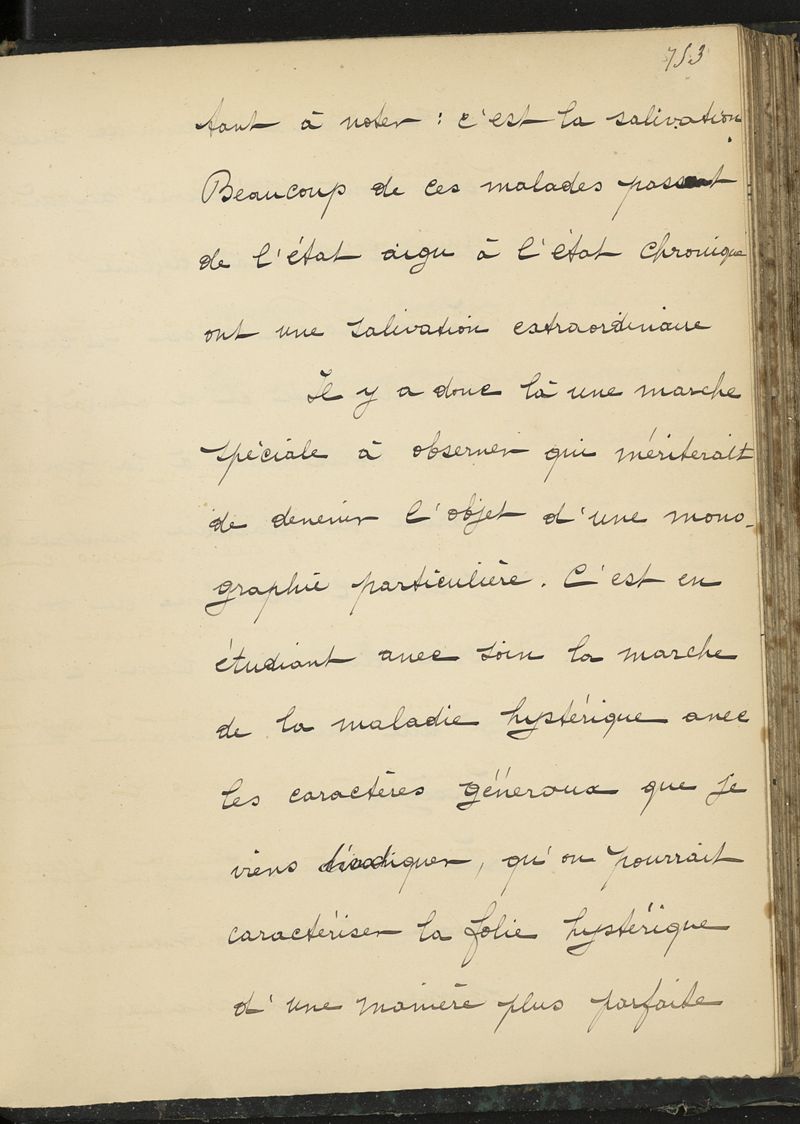 753
tant à noter : c'est la salivation.
Beaucoup de ces malades passant
de l'état aigu à l'état chronique
ont une salivation extraordinaire
Il y a donc là une marche
spéciale à observer qui mériterait
de devenir l'objet d'une mono-
graphie particulière. C'est en
étudiant avec soin la marche
de la maladie hystérique avec
les caractères généraux que je
viens d'indiquer, qu'on pourrait
caractériser la folie hystérique
d'une manière plus parfaite